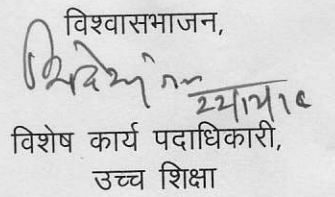 विश्वासभाजन,
विशेष कार्य पदाधिकारी,
उच्च शिक्षा